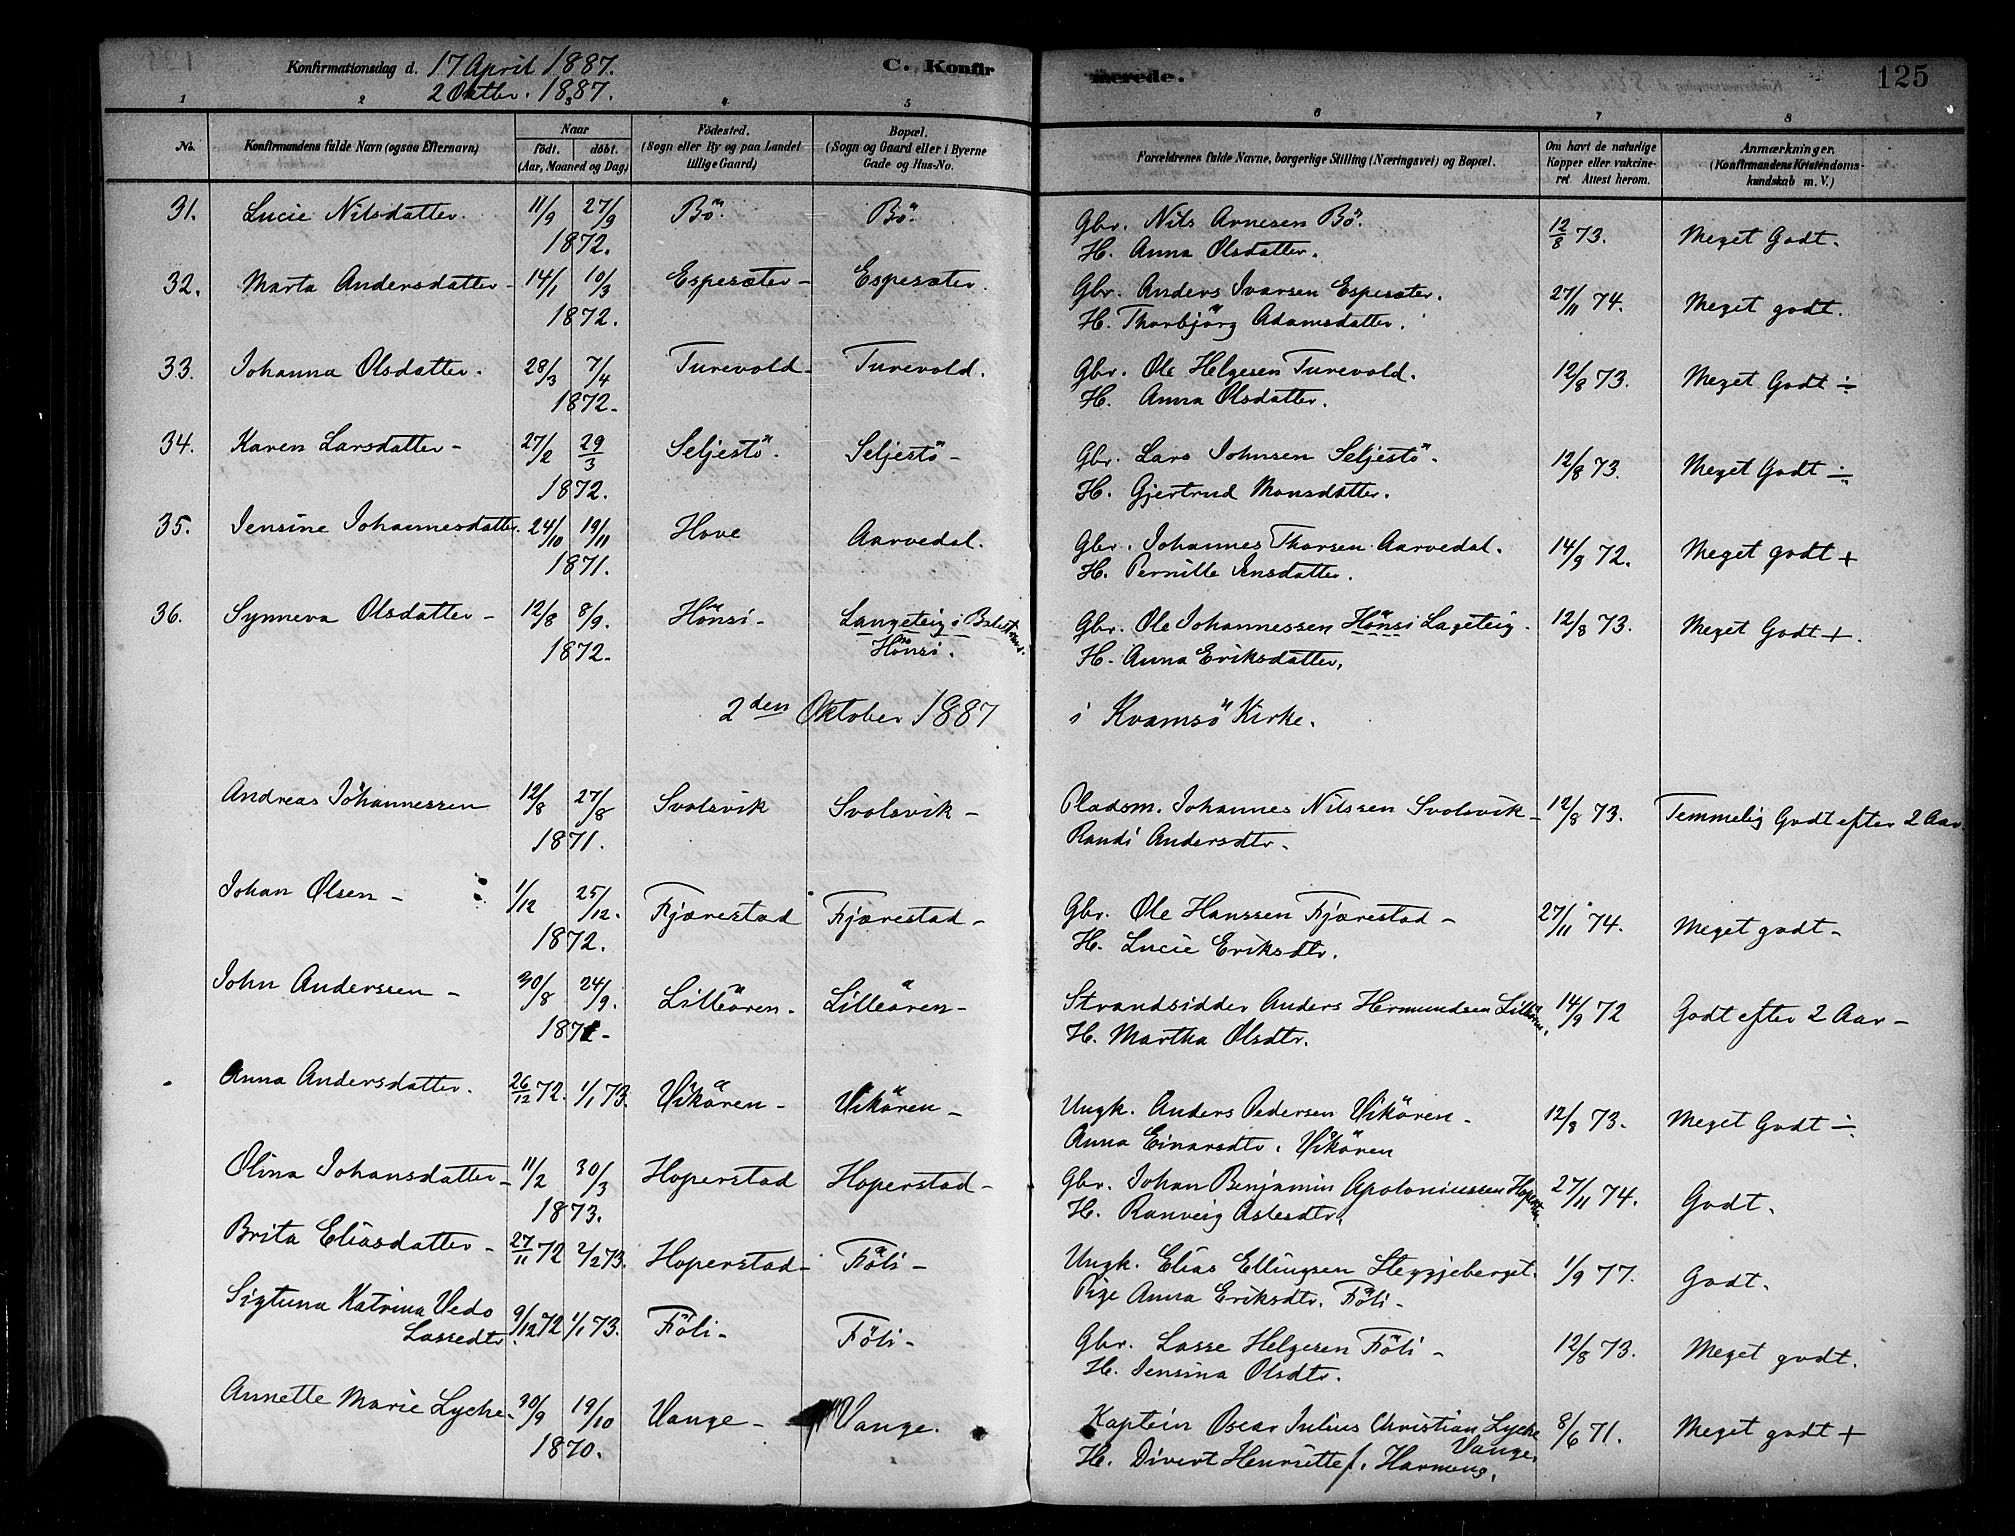 Konfirmationsdag d. 17 April 1887. C. Konfirmerede. 125
2 Oktbr. 1887.
1 2 3 4 5 6 7 8
No. Konfirmandens fulde Navn (ogsaa Efternavn) Naar født. døbt. (Aar, Maaned og Dag) Fødested. (Sogn eller By og paa Landet tillige Gaard) Bopæl. (Sogn og Gaard eller i Byerne Gade og Hus-No. Forældrenes fulde Navne, borgerlige Stilling (Næringsvei) og Bopæl. Om havt de naturlige Kopper eller vakcineret. Attest herom. Anmærkninger. (Konfirmandens Kristendomskundskab m. V.)
31. Lucie Nilsdatter. 11/9 27/9 Bö. Bö. Gbr. Nils Arnesen Bö. 12/8 73. Meget Godt.
1872. H. Anna Olsdatter.
32. Marta Andersdatter - 14/1 10/3 Espesæter - Espesæter. Gbr. Anders Ivarsen Espesæter. 27/11 74. Meget godt.
1872. H. Thorbjörg Adamsdatter.
33. Johanna Olsdatter. 28/3 7/4 Turevold - Turevold. Gbr. Ole Helgesen Turevold. 12/8 73. Meget Godt ÷
1872. H. Anna Olsdatter.
34. Karen Larsdatter - 27/2 29/3 Seljestö. Seljestö - Gbr. Lars Johnsen Seljestö. 12/8 73. Meget Godt ÷
1872. H. Gjertrud Monsdatter.
35. Jensine Johannesdatter. 24/10 19/11 Hove Aarvedal. Gbr. Johannes Thorsen Aarvedal. 14/9 72. Meget godt +
1871. H. Pernille Jensdatter.
36. Synneva Olsdatter - 12/8 8/9. Hönsi - Langeteig i Balestrand. Gbr. Ole Johannessen Hönsi Lageteig. 12/8 73. Meget Godt +.
1872. Hönsi. H. Anna Eriksdatter.
2den Oktober 1887 i Kvamsö Kirke.
Andreas Johannessen 12/8 27/8 Svolsvik Svolsvik - Pladsm. Johannes Nilssen Svolsvik - 12/8 73. Temmelig Godt efter 2 Aar.
1871. Randi Andersdtr.
Johan Olsen - 1/12 25/12. Fjærestad Fjærestad - Gbr. Ole Hanssen Fjærestad - 27/11 74. Meget godt -
1872. H. Lucie Eriksdtr.
John Anderssen - 30/8 24/9. Lilleören. Lilleören - Strandsidder Anders Hermundsen Lilleören. 14/9 72 Godt efter 2 Aar -
1871 - H. Martha Olsdtr.
Anna Andersdatter. 26/12 72. 1/1 73. Vikören - Vikören - Ungk. Anders Pedersen Vikören - 12/8 73. Meget Godt ÷
Anna Einarsdtr. Vikören
Olina Johansdatter - 11/2 30/3 Hoperstad Hoperstad - Gbr. Johan Benjamin Apoloniussen Hoperstad. 27/11 74. Godt.
1873. H. Ranveig Aslesdtr.
Brita Eliasdatter - 27/11 72 2/2 73. Hoperstad - Föli - Ungk. Elias Ellingsen Steggjeberget. 1/9 77. Godt.
Pige Anna Eriksdtr. Föli -
Sigtuna Katrina Vedo 9/12 72 1/1 73. Föli - Föli - Gbr. Lasse Helgesen Föli - 12/8 73. Meget godt.
Lassedtr. H. Jensina Olsdtr.
Annette Marie Lyche - 30/9 19/10 Vange - Vange. Kaptein Oscar Julius Christian Lyche 8/6 71. Meget godt +
1870. Vange.
H. Divert Henriette f. Harmens.